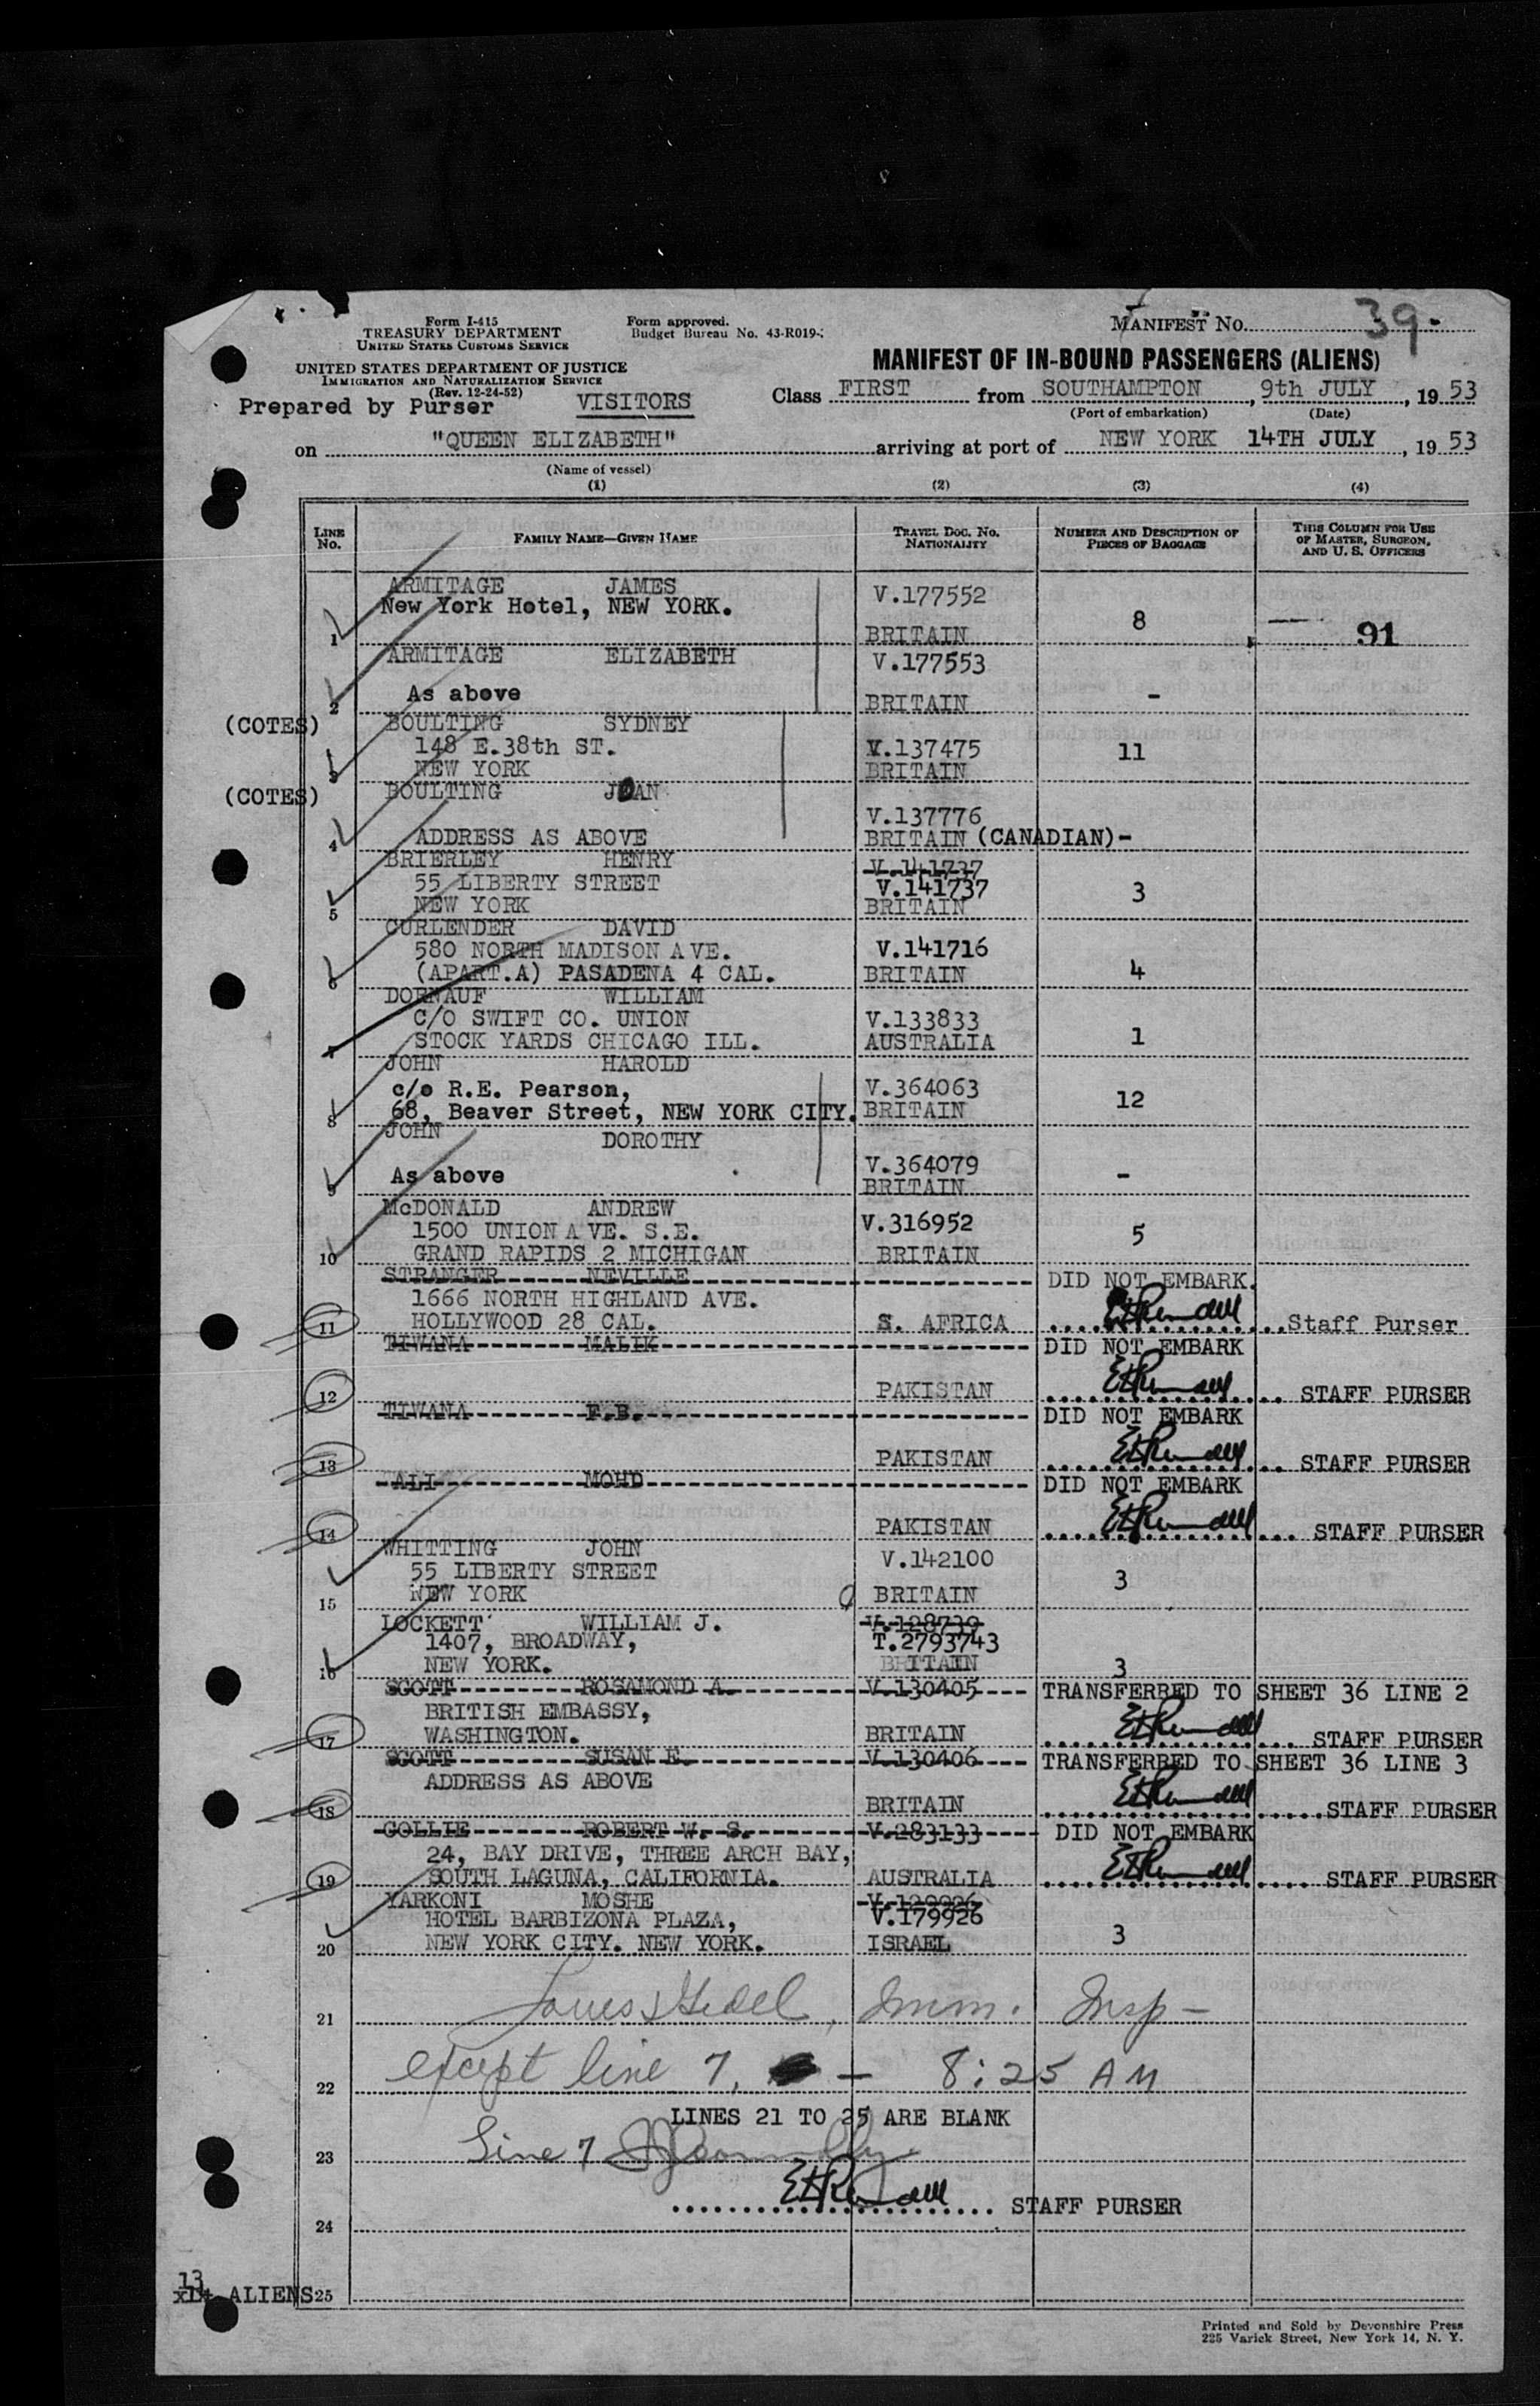 Form I-415
TREASURY DEPARTMENT
UNITED STATES CUSTOMS SERVICE
Form approved.
Budget Bureau No. 43-R019-
MANIFEST NO. 39-
UNITED STATES DEPARTMENT OF JUSTICE
IMMIGRATION AND NATURALIZATION SERVICE
(Rev. 12-24-52)
MANIFEST OF IN-BOUND PASSENGERS (ALIENS)
Prepared by Purser VISITORS
Class FIRST from SOUTHAMPTON, 9th JULY, 19 53
(Port of embarkation) (Date)
on "QUEEN ELIZABETH" arriving at port of NEW YORK 14TH JULY, 19 53
(Name of vessel)
(1) (2) (3) (4)
LINE NO.
FAMILY NAME—GIVEN NAME
TRAVEL DOC. NO. NATIONALITY
NUMBER AND DESCRIPTION OF PIECES OF BAGGAGE
THIS COLUMN FOR USE OF MASTER, SURGEON, AND U. S. OFFICERS
ARMITAGE JAMES V.177552
New York Hotel, NEW YORK.
1 BRITAIN 8 91
ARMITAGE ELIZABETH V.177553
As above
2 BRITAIN -
(COTES) BOULTING SYDNEY
148 E.38th ST. V.137475 11
3 NEW YORK BRITAIN
(COTES) BOULTING JOAN
V.137776
4 ADDRESS AS ABOVE BRITAIN (CANADIAN)-
BRIERLEY HENRY V.141737
55 LIBERTY STREET V.141737 3
5 NEW YORK BRITAIN
CURLENDER DAVID
580 NORTH MADISON AVE. V.141716
6 (APART.A) PASADENA 4 CAL. BRITAIN 4
DORNAUF WILLIAM
C/O SWIFT CO. UNION V.133833
7 STOCK YARDS CHICAGO ILL. AUSTRALIA 1
JOHN HAROLD
c/o R.E. Pearson, V.364063
8 68, Beaver Street, NEW YORK CITY. BRITAIN 12
JOHN DOROTHY
V.364079
9 As above BRITAIN -
McDONALD ANDREW
1500 UNION AVE. S.E. V.316952 5
10 GRAND RAPIDS 2 MICHIGAN BRITAIN
STRANGER NEVILLE DID NOT EMBARK.
1666 NORTH HIGHLAND AVE.
11 HOLLYWOOD 28 CAL. S. AFRICA Staff Purser
TIWANA MALIK DID NOT EMBARK
12 PAKISTAN STAFF PURSER
TIWANA F.B. DID NOT EMBARK
13 PAKISTAN STAFF PURSER
ALI MOHD DID NOT EMBARK
14 PAKISTAN STAFF PURSER
WHITTING JOHN V.142100
55 LIBERTY STREET 3
15 NEW YORK BRITAIN
LOCKETT WILLIAM J. V.128739
1407, BROADWAY, T.2793743
16 NEW YORK. BRITAIN 3
SCOTT ROSAMOND A. V.130405 TRANSFERRED TO SHEET 36 LINE 2
BRITISH EMBASSY,
17 WASHINGTON. BRITAIN STAFF PURSER
SCOTT SUSAN E. V.130406 TRANSFERRED TO SHEET 36 LINE 3
ADDRESS AS ABOVE
18 BRITAIN STAFF PURSER
GOLLIE ROBERT W. S. V.283133 DID NOT EMBARK
24, BAY DRIVE, THREE ARCH BAY,
19 SOUTH LAGUNA, CALIFORNIA. AUSTRALIA STAFF PURSER
YARKONI MOSHE
HOTEL BARBIZONA PLAZA, V.179926
20 NEW YORK CITY. NEW YORK. ISRAEL 3
21 Imm. Insp-
22 except line 7, — 8:25 AM
LINES 21 TO 25 ARE BLANK
23 Line 7
STAFF PURSER
24
13
ALIENS 25
Printed and Sold by Devonshire Press
225 Varick Street, New York 14, N. Y.